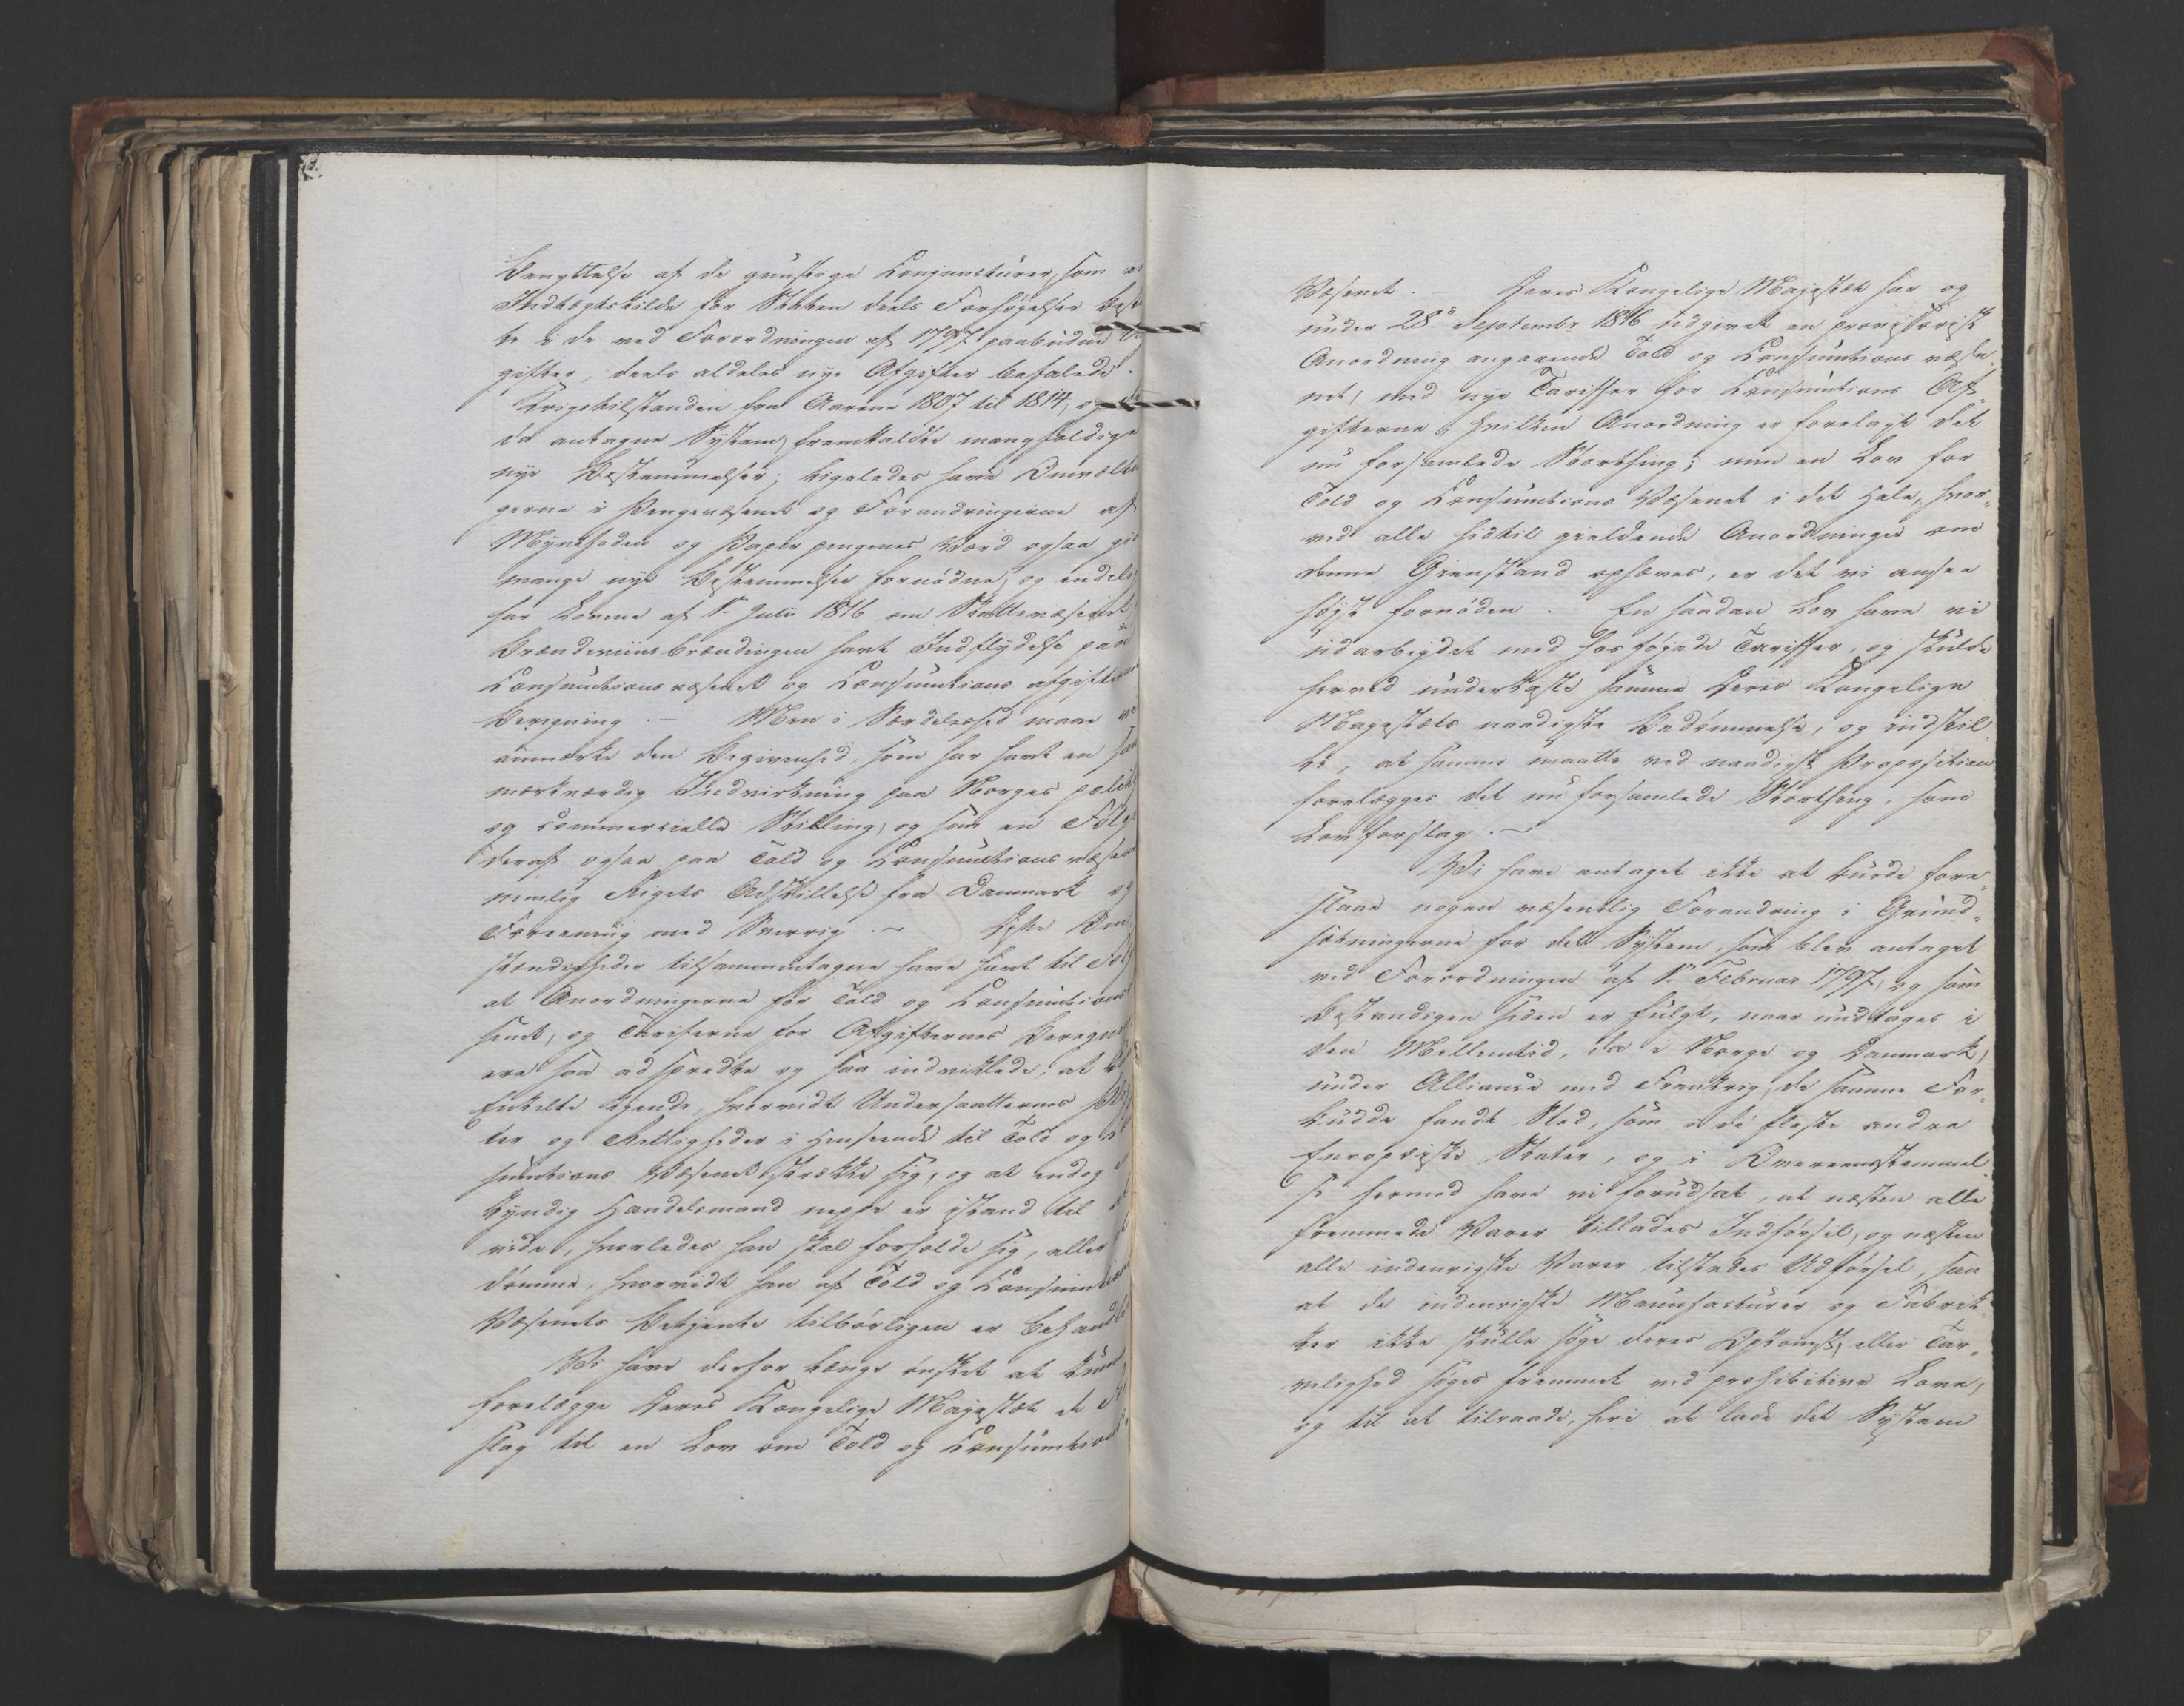 Benyttelse af de gunstige Conjuncturer, som
Indtægtskilde for Staten deels Forhøyelser
te i de ved Forordningen af 1797 paabudne
gifter, deels aldeles nye Afgifter befalede.
Krigstilstanden fra Aarene 1807 til 1814, og
da antagne System, fremkaldte mangfoldige
nye Bestemmelser; ligeledes have Omvælt
gerne i Pengevæsenet og Forandringerne af
Myntfoden og Papirpengenes Værd ogsaa
mange nye Bestemmelser fornødne, og endelig
har Lovene af 1ste Julii 1816 om Skattevæsenet
Brændeviinsbrændingen havt Indflydelse paa
Consumtionsvæsenet og Consumtions afgifternes
Beregning. – Men i Særdeleshed maae
anmærke den Begivenhed, som har havt en saa
mærkværdig Indvirkning paa Norges polit
og commercielle Stilling, og som en Følge
deraf ogsaa paa Told og Consumtionsvæsen
nemlig Rigets Adskillelse fra Danmark og
Foreening med Sverrig. – Disse Om
stændigheder tilsammentagne have havt til Følg
at Anordningerne for Told og Consumtions
senet, og Tarifferne for Afgifternes Beregn
ere saa adspredte og saa indviklede, at
Enkelte lignende, hvorvidt Undersaatternes Plig
ter og Rettigheder i Henseende til Told og
sumtions Væsenet strække sig, og at endog
kyndig Handelsmand neppe er istand til
vide, hvorledes han skal forholde sig, eller
dømme, hvorvidt han af Told og Consumtions
Væsenets Betjente tilbørligen er behandlet
Vi have derfor længe ønsket at kunne
forelægge Deres Kongelige Majestæt et
slag til en Lov om Told og Consumtions
Væsenet. – Deres Kongelige Majestæt har og
under 28de September 1816 udgivet en provisorisk
Anordning angaaende Told og Consumtions væse
net, med nye Tariffer for Consumtions Af-
gifterne, hvilken Anordning er forelagt det
nu forsamlede Storthing; men en Lov for
Told og Consumtions Væsenet i det Hele, hvor-
ved alle hidtil gieldende Anordninger om
denne Gienstand ophæves, er det vi ansee
høist fornøden. En saadan Lov have vi
udarbeydet med hosføjede Tariffer, og skulde
herved underkaste samme Deres Kongelige
Majestæts naadigste Bedømmelse, og indstil-
le, at samme maatte ved naadigst Proposition
forelægges det nu forsamlede Storthing, som
Lovforslag. –
Vi have antaget ikke at burde fore-
slaae nogen væsentlig Forandring i Grund-
sætningerne for det System, som blev antaget
ved Forordningen af 1ste Februar 1797, og som
bestandigen siden er fulgt, naar undtages i
den Mellemtid, da i Norge og Danmark,
under Alliance med Frankrig, de samme For-
budde fandt Sted, som i de fleste andre
Europæiske Stater, og i Overeensstemmel-
se hermed have vi forudsat, at næsten alle
fremmede Varer tillades Indførsel, og næsten
alle indenrigske Varer tilstedes Udførsel, saa
at de indenrigske Manufacturer og Fabrik-
ker ikke skulle søge deres Opkomst, eller Tar-
velighed søges fremmet ved prohibitive Love,
og til at tilraade, heri at lade det System